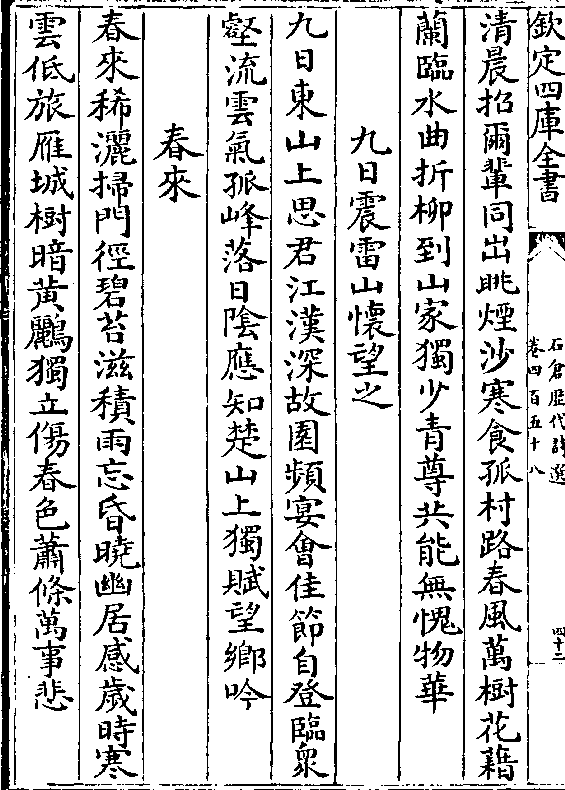 欽定四庫全書
石倉歷代詩選
卷四百五十八
四十二
清晨招爾輩同出眺煙沙寒食孤村路春風萬樹花藉
蘭臨水曲折柳到山家獨少青尊共能無愧物華
九日震雷山懷望之
九日東山上思君江漢深故園頻宴會佳節自登臨衆
壑流雲氣孤峰落日陰應知楚山上獨賦望鄉吟
春來
春來稀灑掃門徑碧苔滋積雨忘昏曉幽居感歲時寒
雲低旅雁城樹暗黃鸝獨立傷春色蕭條萬事悲